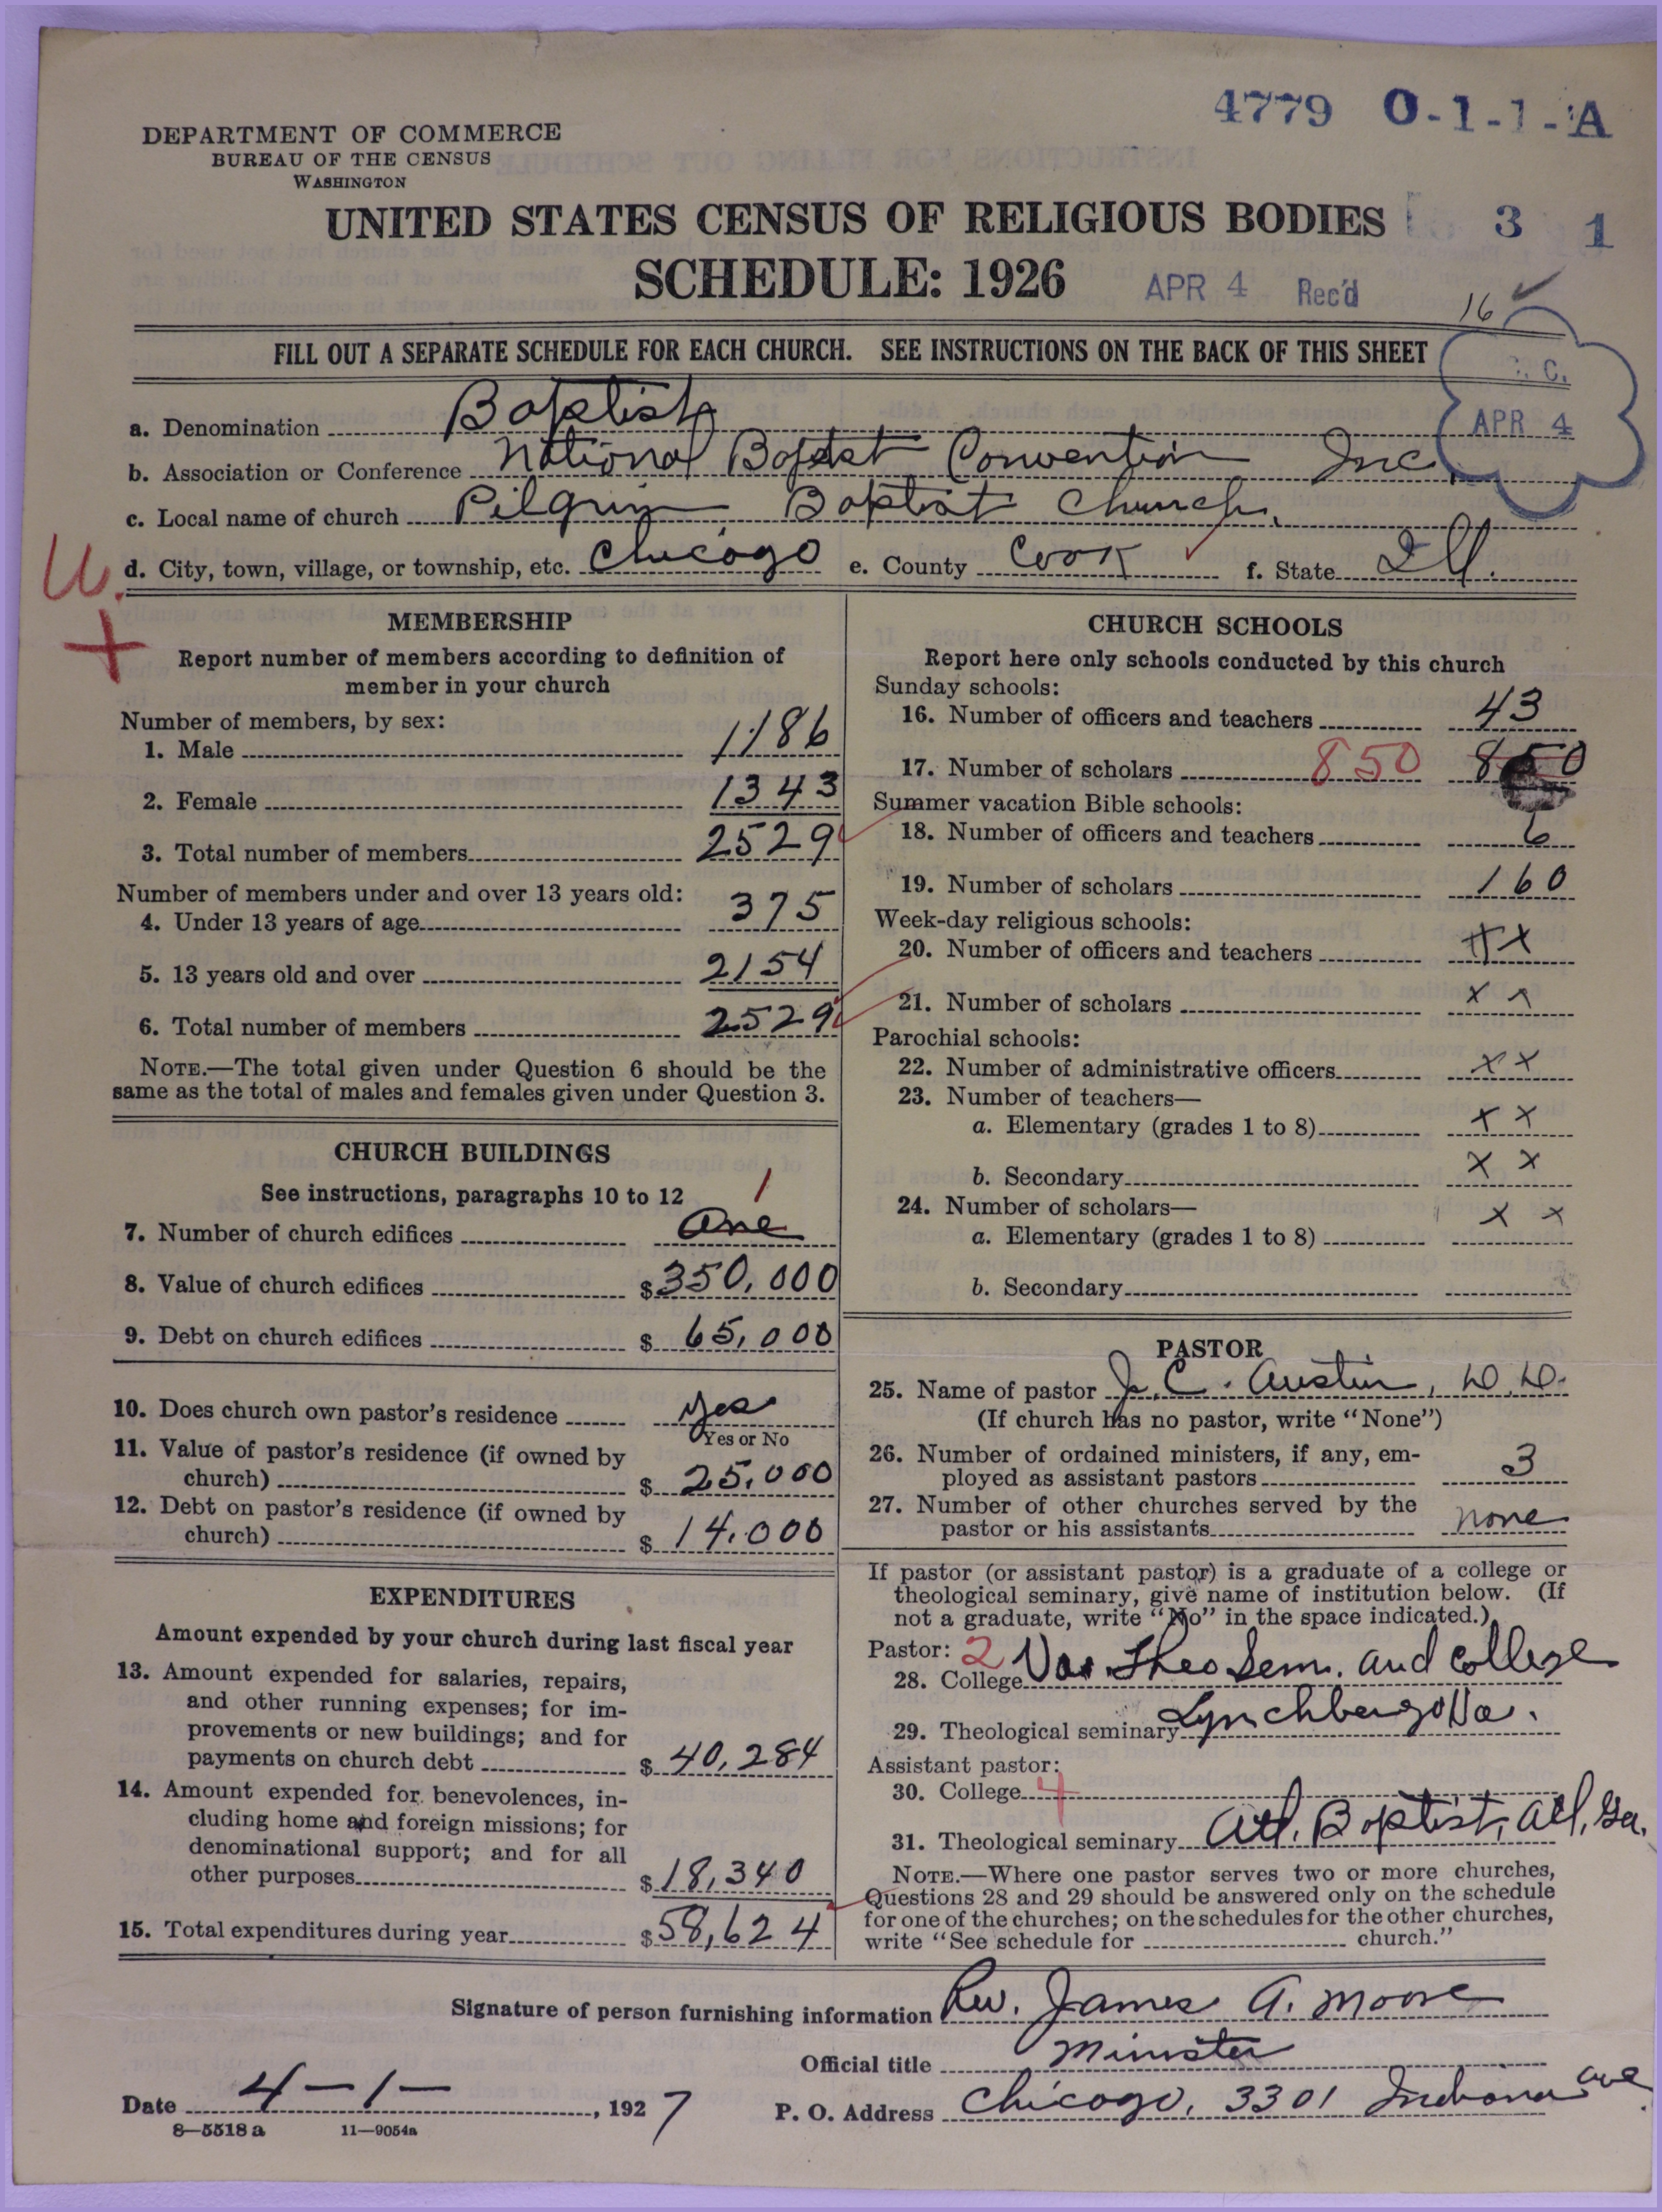 4779 O-1-1-A
DEPARTMENT OF COMMERCE
BUREAU OF THE CENSUS
WASHINGTON
UNITED STATES CENSUS OF RELIGIOUS BODIES
3 1
SCHEDULE: 1926
APR 4 Rec'd
16
FILL OUT A SEPARATE SCHEDULE FOR EACH CHURCH. SEE INSTRUCTIONS ON THE BACK OF THIS SHEET
C.
APR 4
a. Denomination Baptist
b. Association or Conference National Baptist Convention Inc.
c. Local name of church Pilgrim Baptist Church.
d. City, town, village, or township, etc. Chicago e. County Cook f. State Ill.
U.
MEMBERSHIP
Report number of members according to definition of
member in your church
Number of members, by sex:
1. Male 1186
2. Female 1343
3. Total number of members 2529
Number of members under and over 13 years old:
4. Under 13 years of age 375
5. 13 years old and over 2154
6. Total number of members 2529
NOTE.—The total given under Question 6 should be the
same as the total of males and females given under Question 3.
CHURCH BUILDINGS
See instructions, paragraphs 10 to 12
1
7. Number of church edifices One
8. Value of church edifices $350,000
9. Debt on church edifices $ 65,000
10. Does church own pastor's residence Yes
Yes or No
11. Value of pastor's residence (if owned by
church) $ 25,000
12. Debt on pastor's residence (if owned by
church) $ 14,000
EXPENDITURES
Amount expended by your church during last fiscal year
13. Amount expended for salaries, repairs,
and other running expenses; for im-
provements or new buildings; and for
payments on church debt $ 40,284
14. Amount expended for benevolences, in-
cluding home and foreign missions; for
denominational support; and for all
other purposes $18,340
15. Total expenditures during year $58,624
CHURCH SCHOOLS
Report here only schools conducted by this church
Sunday schools:
16. Number of officers and teachers 43
17. Number of scholars 850 850
Summer vacation Bible schools:
18. Number of officers and teachers 6
19. Number of scholars 160
Week-day religious schools:
20. Number of officers and teachers x x
21. Number of scholars x x
Parochial schools:
22. Number of administrative officers x x
23. Number of teachers—
a. Elementary (grades 1 to 8) x x
b. Secondary x x
24. Number of scholars—
a. Elementary (grades 1 to 8) x x
b. Secondary
PASTOR
25. Name of pastor J. C. Austin, D.D.
(If church has no pastor, write "None")
26. Number of ordained ministers, if any, em-
ployed as assistant pastors 3
27. Number of other churches served by the
pastor or his assistants none
If pastor (or assistant pastor) is a graduate of a college or
theological seminary, give name of institution below. (If
not a graduate, write "No" in the space indicated.)
Pastor: 2
28. College Va. Theo Sem. and College
29. Theological seminary Lynchburg Va.
Assistant pastor:
30. College 4
31. Theological seminary Atl. Baptist, Atl, Ga.
NOTE.—Where one pastor serves two or more churches,
Questions 28 and 29 should be answered only on the schedule
for one of the churches; on the schedules for the other churches,
write "See schedule for church."
Signature of person furnishing information Rev. James A. Moore
Official title Minister
Date 4-1-, 1927
P. O. Address Chicago, 3301 Indiana Ave.
8—5518 a 11—9054a